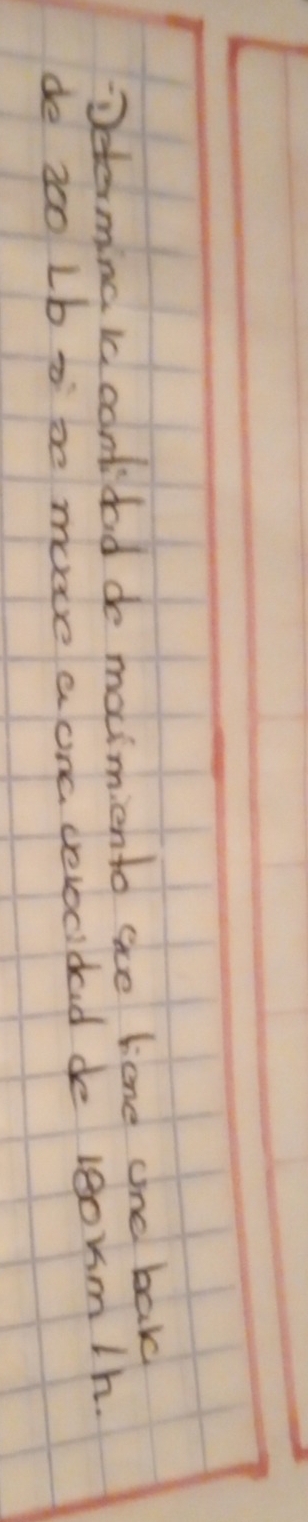 Determina la cantidad de movimiento que tiene una bala
de 200 Lb si se mueve a una velocidad de 180 Km/h.